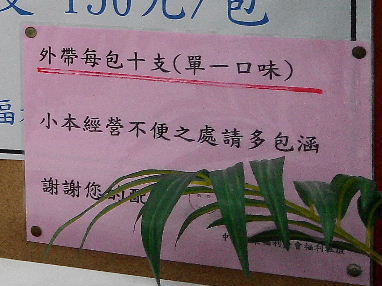 150元/包
外帶每包十支(單一口味)
小本經營不便之處請多包涵
謝謝您的配